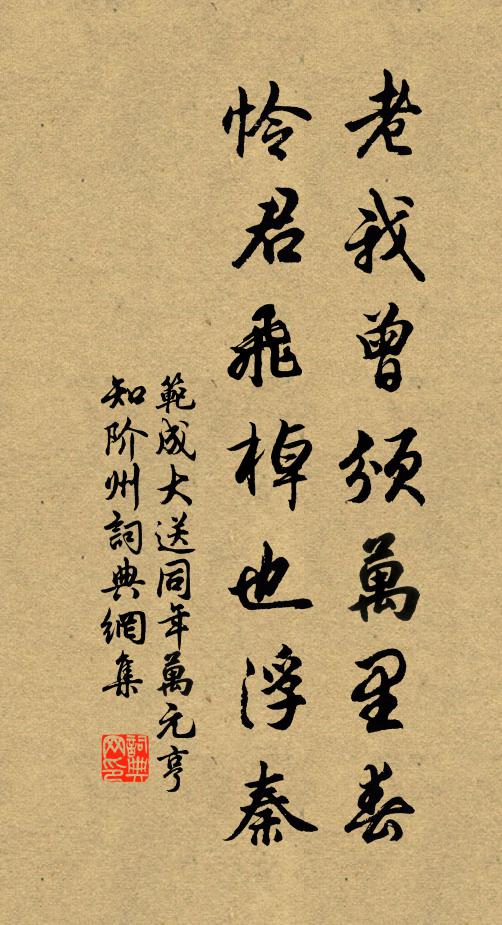 老我曾頒萬里春
憐君飛棹也浮秦
範成大送同年萬元亨
知阶州詞典網集
詞典
网印